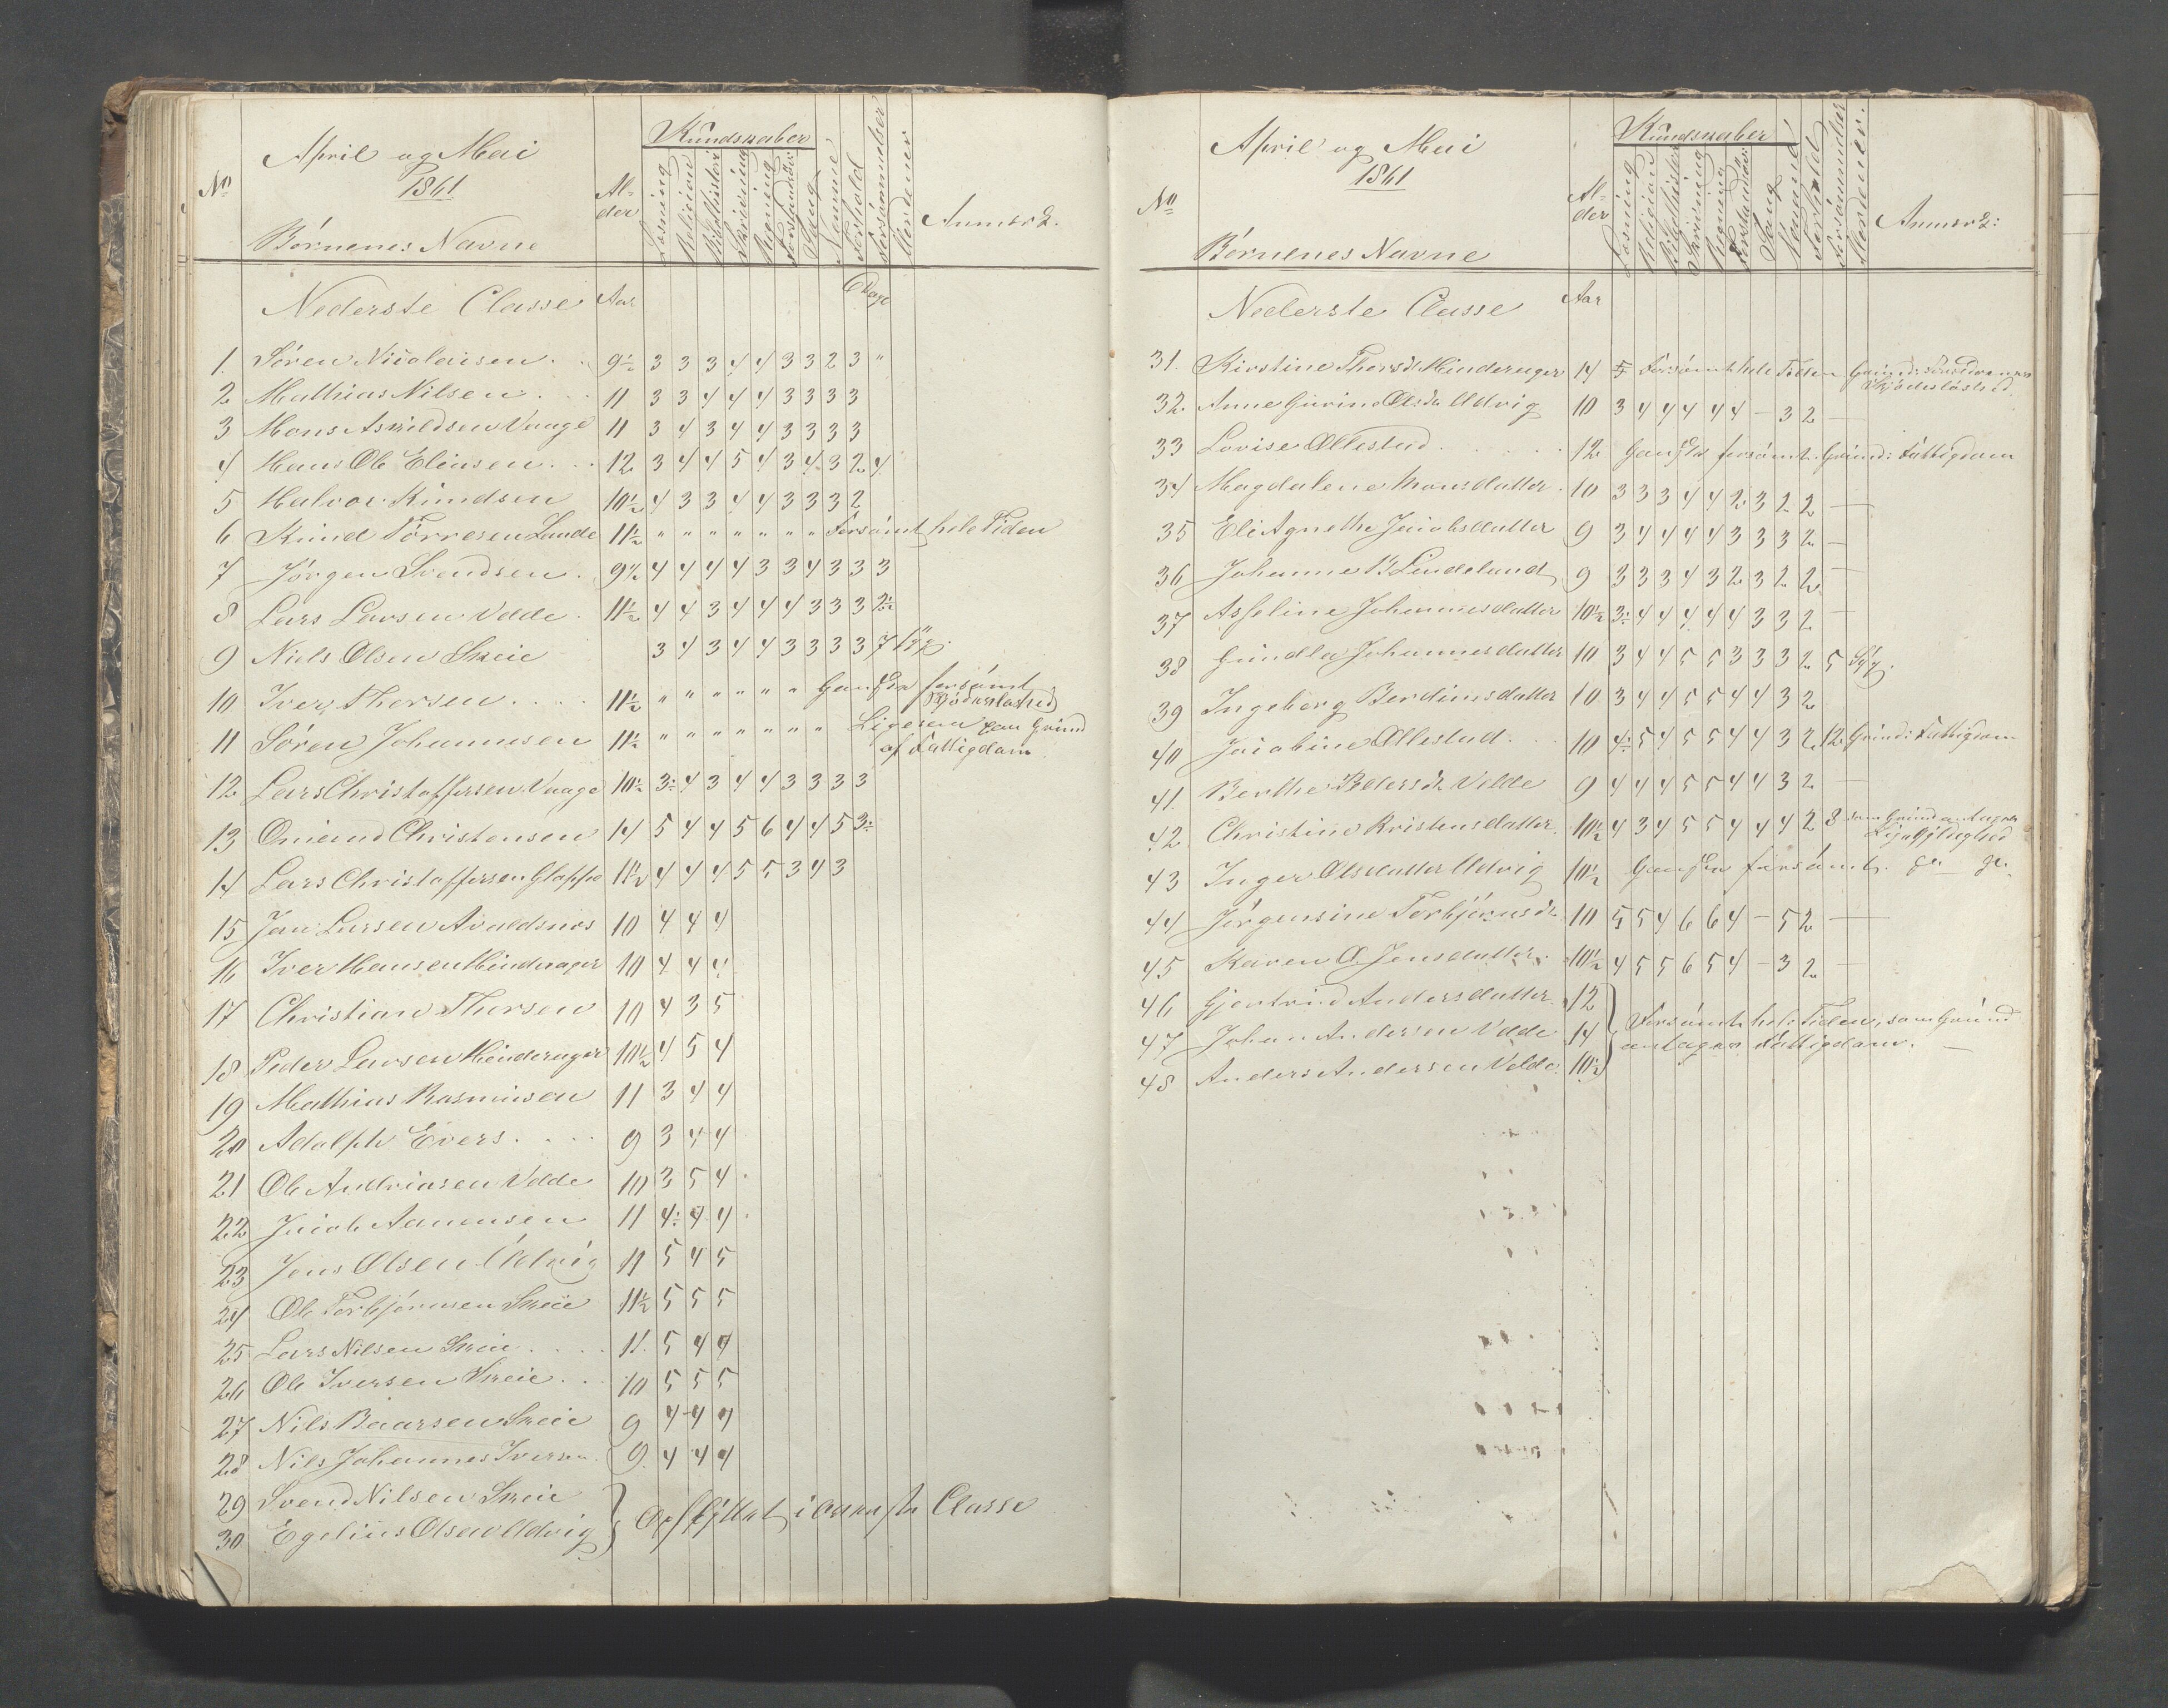 April og Mai
1861
Kundskaber
No
Al-
der
Læsning
Religion
Bibelhistorie
Skrivning
Regning
Forstandsöv.
Sang
Nemme
Forhold
Forsömmelser
Anmærk.
Börnenes Navne
Nederste Classe Aar
Dage
1. Sören Nicolaisen . . 9½ 3 3 3 4 4 3 3 2 3 "
2 Mathias Nilsen . . . 11 3 3 4 4 4 3 3 3 3
3 Mons Asvildsen Vaage 11 3 4 3 4 4 3 3 3 3
4 Hans Ole Eliasen . . . 12 3 4 4 5 4 3 4 3 2 4
5 Halvor Knudsen 10½ 4 3 3 4 4 3 3 3 2
6 Knud Törresen Lande 11½ " " " " " " " Forsömt hele Tiden
7 Jörgen Svendsen . 9½ 4 4 4 4 3 3 4 3 3 3
8 Lars Larsen Velde . 11½ 4 4 3 4 4 4 3 3 3 2½
9 Niels Olsen Skeie 3 4 3 4 4 3 3 3 3 7 syg.
10 Iver Thorsen . . . . 11½ " " " " " " Ganske forsömt
Skjödeslöshed
11 Sören Johannesen 11½ " " " " " " " Ligesaa paa Grund
af Fattigdom
12 Lars Christoffersen Vaage 10½ 3: 4 3 4 4 3 3 3 3
13 Omund Christensen 14 5 4 4 5 6 4 4 5 3:
14 Lars Christoffersen Gloppe 11½ 4 4 4 5 5 3 4 3
15 Jan Larsen Avaldsnes 10 4 4 4
16 Iver Hansen Hinderager 10 4 4 4
17 Christian Thorsen 10 4 3 5
18 Peder Larsen Hinderager 10½ 4 5 4
19 Mathias Rasmusen 11 3 4 4
20 Adolph Evers . . . . 9 3 4 4
21 Ole Andreasen Velde 10 3 5 4
22 Jacob Aamunsen 11 4: 4 4
23 Jens Olsen Udvig 11 5 4 5
24 Ole Torbjörnsen Skeie 11½ 5 5 5
25 Lars Nilsen Skeie . . . . 11. 5 4 4
26 Ole Iversen Skeie . . 10 5 5 5
27 Nils Baarsen Skeie 9 4 4 4
28 Nils Johannes Iversen . 9. 4 4 4
29 Svend Nilsen Skeie
30 Egelius Olsen Udvig } Opflyttet i överste Classe
April og Mai
1861
Kundskaber
No
Al-
der
Læsning
Religion
Bibelhistorie
Skrivning
Regning
Forstandsöv:
Sang
Nemme
Forhold
Forsömmelser
Anmærk:
Börnenes Navne
Nederste Classe Aar
31. Kirstine Thorsd. Hinderager 14 5 Forsömt hele Tiden Grund: Forældrenes
Skjödeslöshed
32 Anne Gurine Olsdr Udvig 10 3 4 4 4 4 4 – 3 2 —
33 Lovise Ollestad . . . . . . 12 Ganske forsömt. Grund: Fattigdom
34 Magdalene Monsdatter . 10 3 3 3 4 4 2 3 2 2 —
35 Eli Agnethe Jacobsdatter 9 3 4 4 4 4 3 3 3 2 —
36 Johanne B. Lindeland 9 3 3 3 4 3 2 3 2 2 —
37 Asseline Johannesdatter 10½ 3: 4 4 4 4 4 3 3 2 —
38 Gundla Johannesdatter 10 3 4 4 5 5 3 3 3 2 5 Syg.
39 Ingeborg Berdinesdatter 10 3 4 4 5 5 4 4 3 2
40 Jacobine Ollestad . . . 10 4: 5 4 5 5 4 4 3 2 12 Grund: Fattigdom
41. Berthe Pedersdr Velde 9 4 4 4 5 5 4 4 3 2 —
42 Christine Kristensdatter 10½ 4 3 4 5 5 4 4 4 2 8 som Grund antages
Ligegyldighed
43 Inger Olsdatter Udvig 10½ Ganske forsömt.
44 Jörgensine Torbjörnsdr 10 5 5 4 6 6 4 – 5 2 —
45 Karen O. Jensdatter . . 10½ 4 5 5 6 5 4 – 3 2 —
46 Gjertrud Andersdatter . 12
47 Johan Andersen Velde 14 } Forsömt hele Tiden, som Grund
antages Fattigdom. —
48 Anders Andersen Velde. 10½